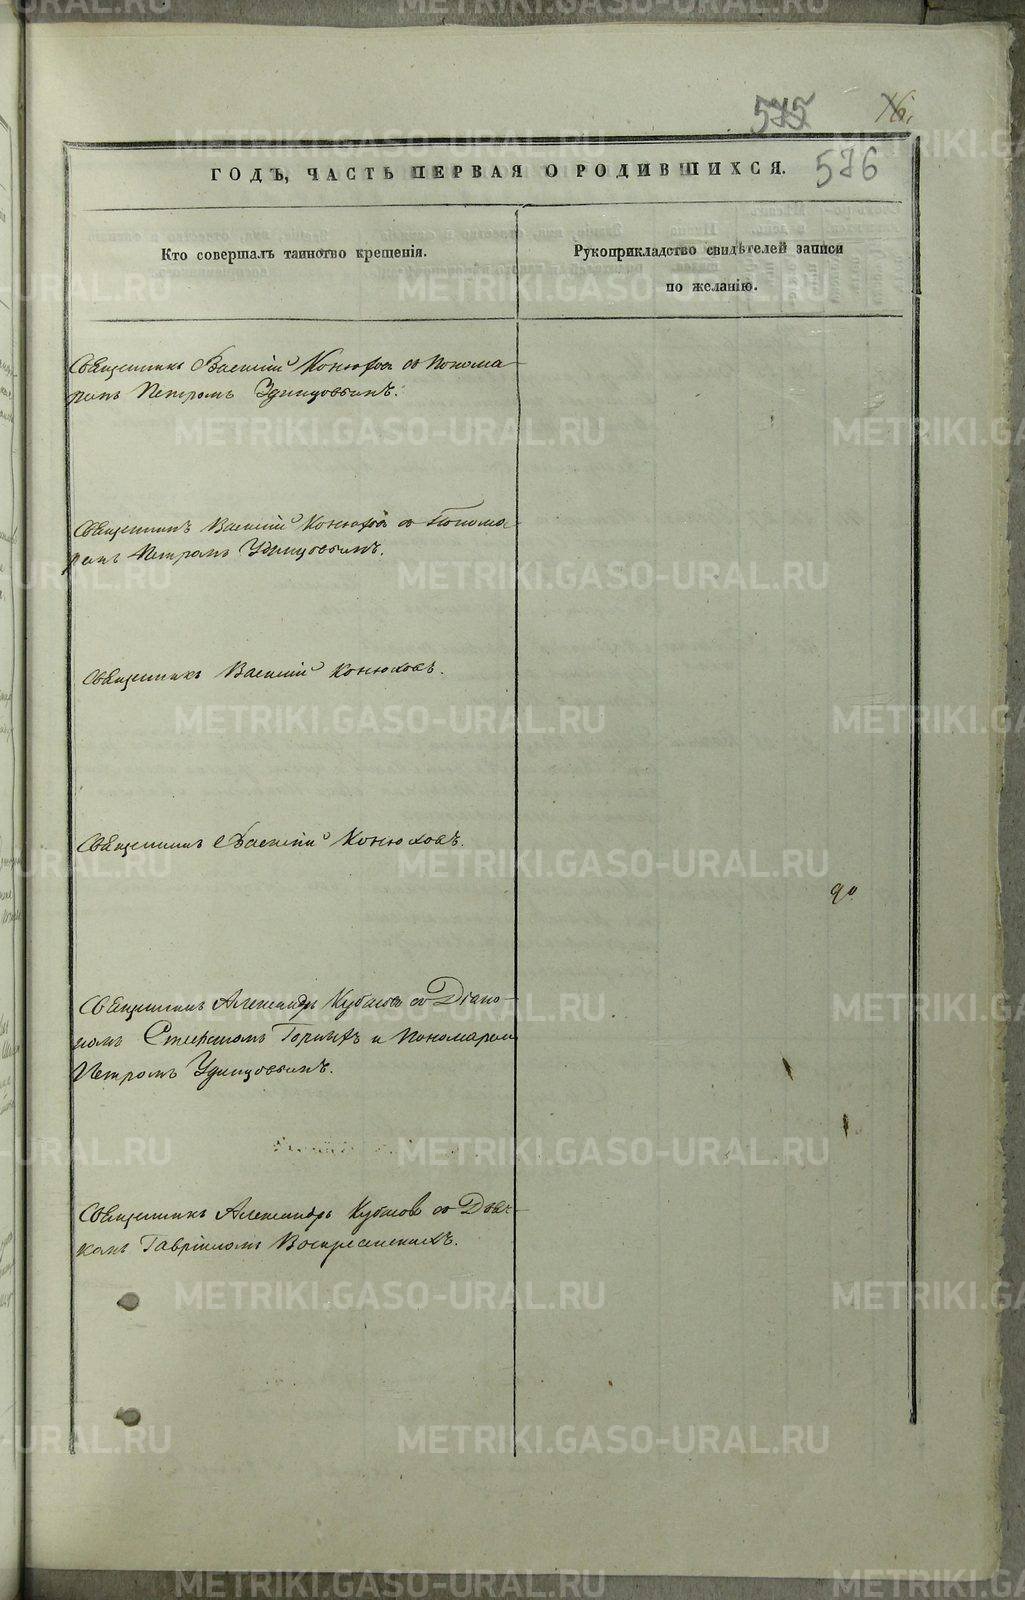 575
576
ГОДЪ, ЧАСТЬ ПЕРВАЯ О РОДИВШИХСЯ.
Кто совершалъ таинство крещенія.
Рукоприкладство свидѣтелей записи
по желанію.
Священникъ Василій Конюховъ съ Понома-
ремъ Петромъ Удинцовымъ.
Священникъ Василій Конюховъ съ Понома-
ремъ Петромъ Удинцовымъ.
Священникъ Василій Конюховъ.
Священникъ Василій Конюховъ.
Священникъ Александръ съ Діако-
номъ и Пономаремъ
Петромъ Удинцовымъ.
Священникъ Александръ съ Дьяч-
комъ Гавріиломъ Воскресенскимъ.
METRIKI.GASO-URAL.RU